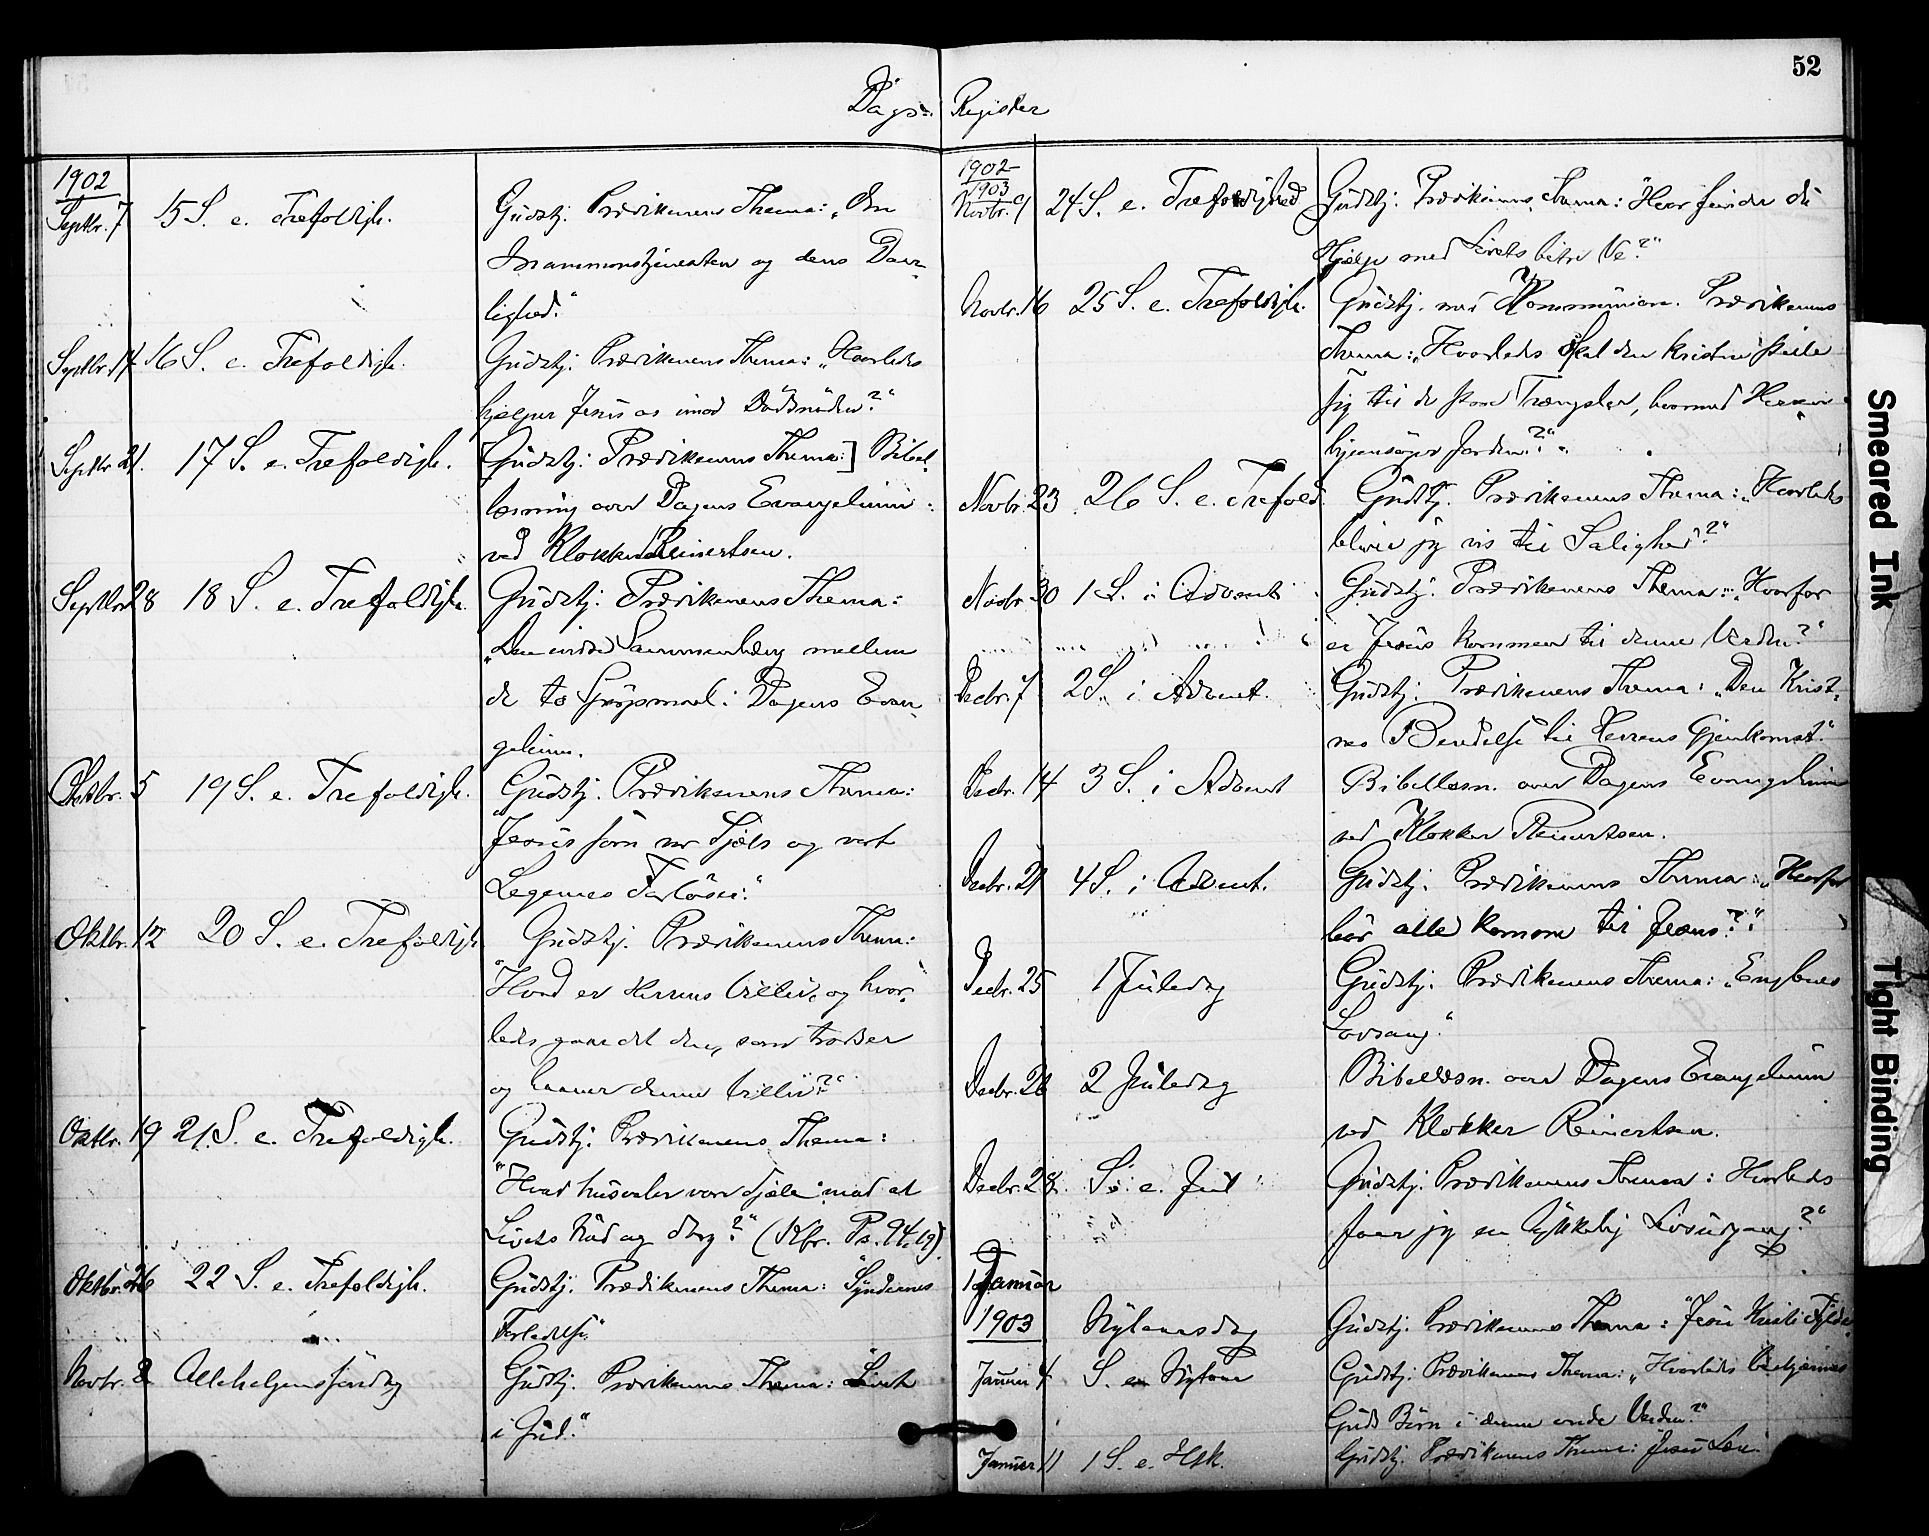 52
Dags- Register
1902
Septbr. 7 15 S. e. Trefoldigh. Gudstj. Prædikenens Thema: „Om
Mammonstjenesten og dens Daar-
lighed."
Septbr. 14 16 S. e. Trefoldigh. Gudstj. Prædikenens Thema: „Hvorledes
hjælper Jesus os imod Dødsnøden?"
Septbr. 21. 17 S. e. Trefoldigh. [Gudstj: Prædikenens Thema:] Bibel-
læsning over Dagens Evangelium
ved Klokker Reinertsen.
Septbr. 28 18 S. e. Trefoldigh. Gudstj: Prædikenens Thema:
„Den indre Sammenhæng mellem
de to Spørgsmaal i Dagens Evan-
gelium.
Oktbr. 5 19 S. e. Trefoldigh. Gudstj. Prædikenens Thema:
"Jesus som vor Sjæls og vort
Legemes Forløser."
Oktbr. 12 20 S. e. Trefoldigh. Gudstj. Prædikenens Thema:
"Hvad er Herrens Villie, og hvor-
ledes gaar det dem, som trodser
og haaner denne Villie?"
Oktbr. 19 21. S. e. Trefoldigh. Gudstj. Prædikenens Thema:
"Hvad husvaler vor Sjæl imod al
Livets Nød og Sorg?" (Kfr. Ps. 94,19).
Oktbr. 26 22 S. e. Trefoldigh. Gudstj. Prædikenens Thema: "Syndernes
Forladelse"
Novbr. 2 Allehelgenssøndag Gudstj. Prædikenens Thema: "Livet
i Gud."
1902
1903
Novbr. 9 24 S. e. Trefoldighed Gudstj: Prædikenens Thema: "Hvor finder du
Hjælp mod Livets bitre Ve?"
Novbr. 16 25 S. e. Trefoldigh. Gudstj. med Kommunion. Prædikenens
Thema: „Hvorledes skal den kristne stille
sig til de store Trængsler, hvormed Herren
hjemsøger Jorden?"
Novbr. 23 26 S. e. Trefold. Gudstj. Prædikenens Thema: „Hvorledes
bliver jeg vis til Salighed?"
Novbr. 30 1 S. i Advent Gudstj. Prædikenens Thema: „Hvorfor
er Jesus kommen til denne Verden?"
Decbr. 7 2 S. i Advent. Gudstj. Prædikenens Thema: „Den Krist-
nes Beredelse til Herrens Gjenkomst."
Decbr. 14 3 S. i Advent Bibellæsn. over Dagens Evangelium
ved Klokker Reinertsen.
Decbr. 21 4 S. i Advent. Gudstj. Prædikenens Thema: „Hvorfor
bør alle komme til Jesus?"
Decbr. 25 1 Juledag Gudstj. Prædikenens Thema: „Englenes
Lovsang."
Decbr. 26 2 Juledag Bibellæsn. over Dagens Evangelium
ved Klokker Reinertsen.
Decbr. 28. S. e. Jul Gudstj. Prædikenens Thema: Hvorledes
faar jeg en lykkelig Livsudgang?"
1 Januar
1903 Nytaarsdag Gudstj. Prædikenens Thema: "Jesu Kristi Fylde
Januar 4 S. e. Nytaar Gudstj. Prædikenens Thema: „Hvorledes
Guds Børn i denne onde Verden?"
Januar 11 1 S. e. H3K. Gudstj. Prædikenens Thema: Jesu
Smeared Ink
Tight Binding